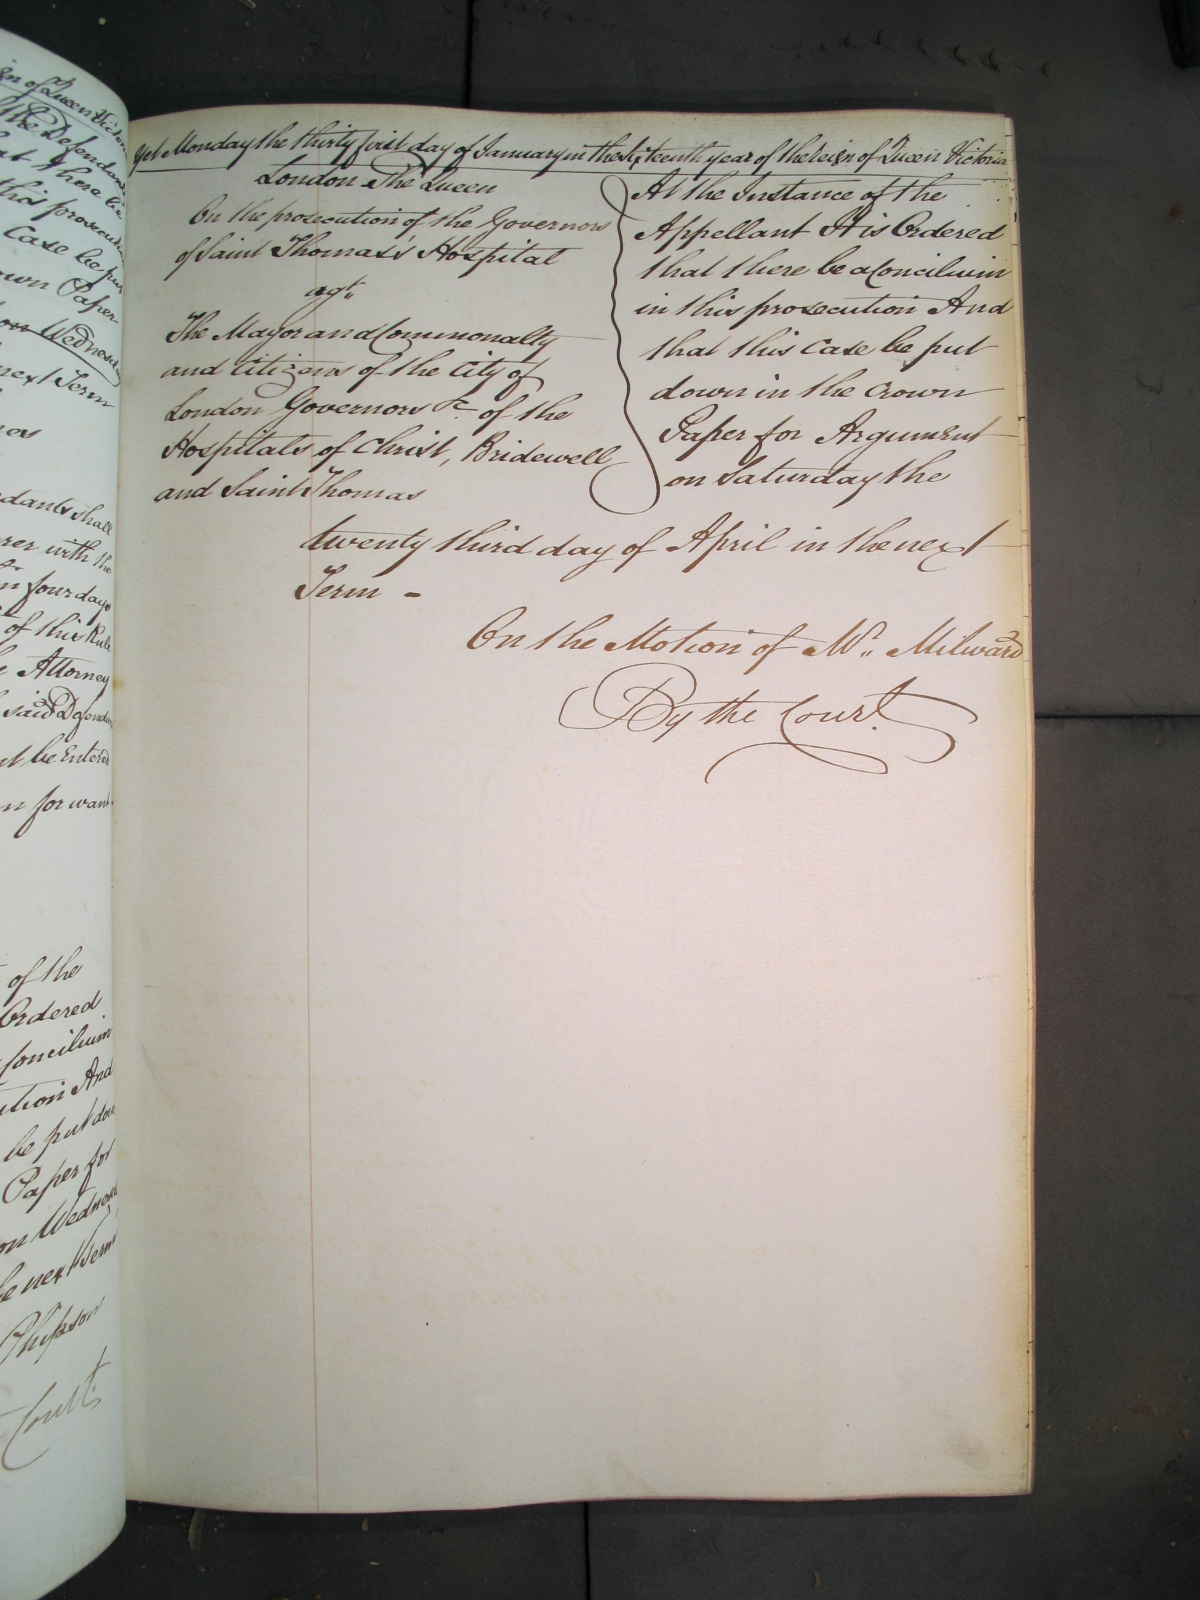 gn of Queen Victoria
the Defendant
at there be
this prosecution
Case be put
own Paper
on Wednesday
next Term
dants shall
rer with the
in four days
of this Rule
Attorney
said Defendant
be Entered
n for want
of the
Ordered
Concilium
ution And
be put down
Paper for
on Wednes
next Term
Phipson
Court.
Yet Monday the thirty first day of January in the Sixteenth year of the Reign of Queen Victoria
London The Queen
On the prosecution of the Governors
of Saint Thomas's Hospital
agt.
The Mayor and Commonalty
and Citizens of the City of
London Governors &c of the
Hospitals of Christ, Bridewell
and Saint Thomas
At the Instance of the
Appellant It is Ordered
that there be a Concilium
in this prosecution And
that this Case be put
down in the Crown
Paper for Argument
on Saturday the
twenty third day of April in the next
Term -
On the Motion of Mr. Milward
By the Court.